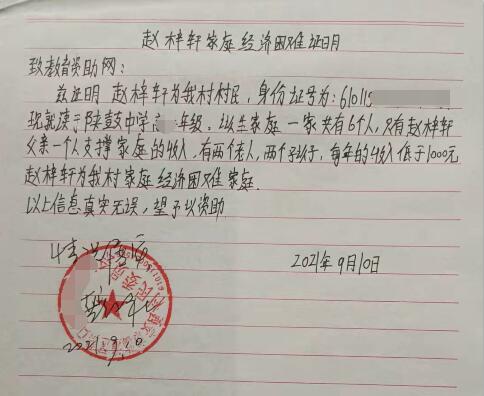 赵梓轩家庭经济困难证明
致教育资助网：
兹证明 赵梓轩为我村村民，身份证号为：610115
现就读于陕鼓中学高 年级。该生家庭一家共有6个人，只有赵梓轩
父亲一个人支撑家庭的收入，有两个老人，两个孩子，每年的收入低于1000元
赵梓轩为我村家庭经济困难家庭.
以上信息真实无误，望予以资助.
情况属实
2021年9月10日
2021.9.10